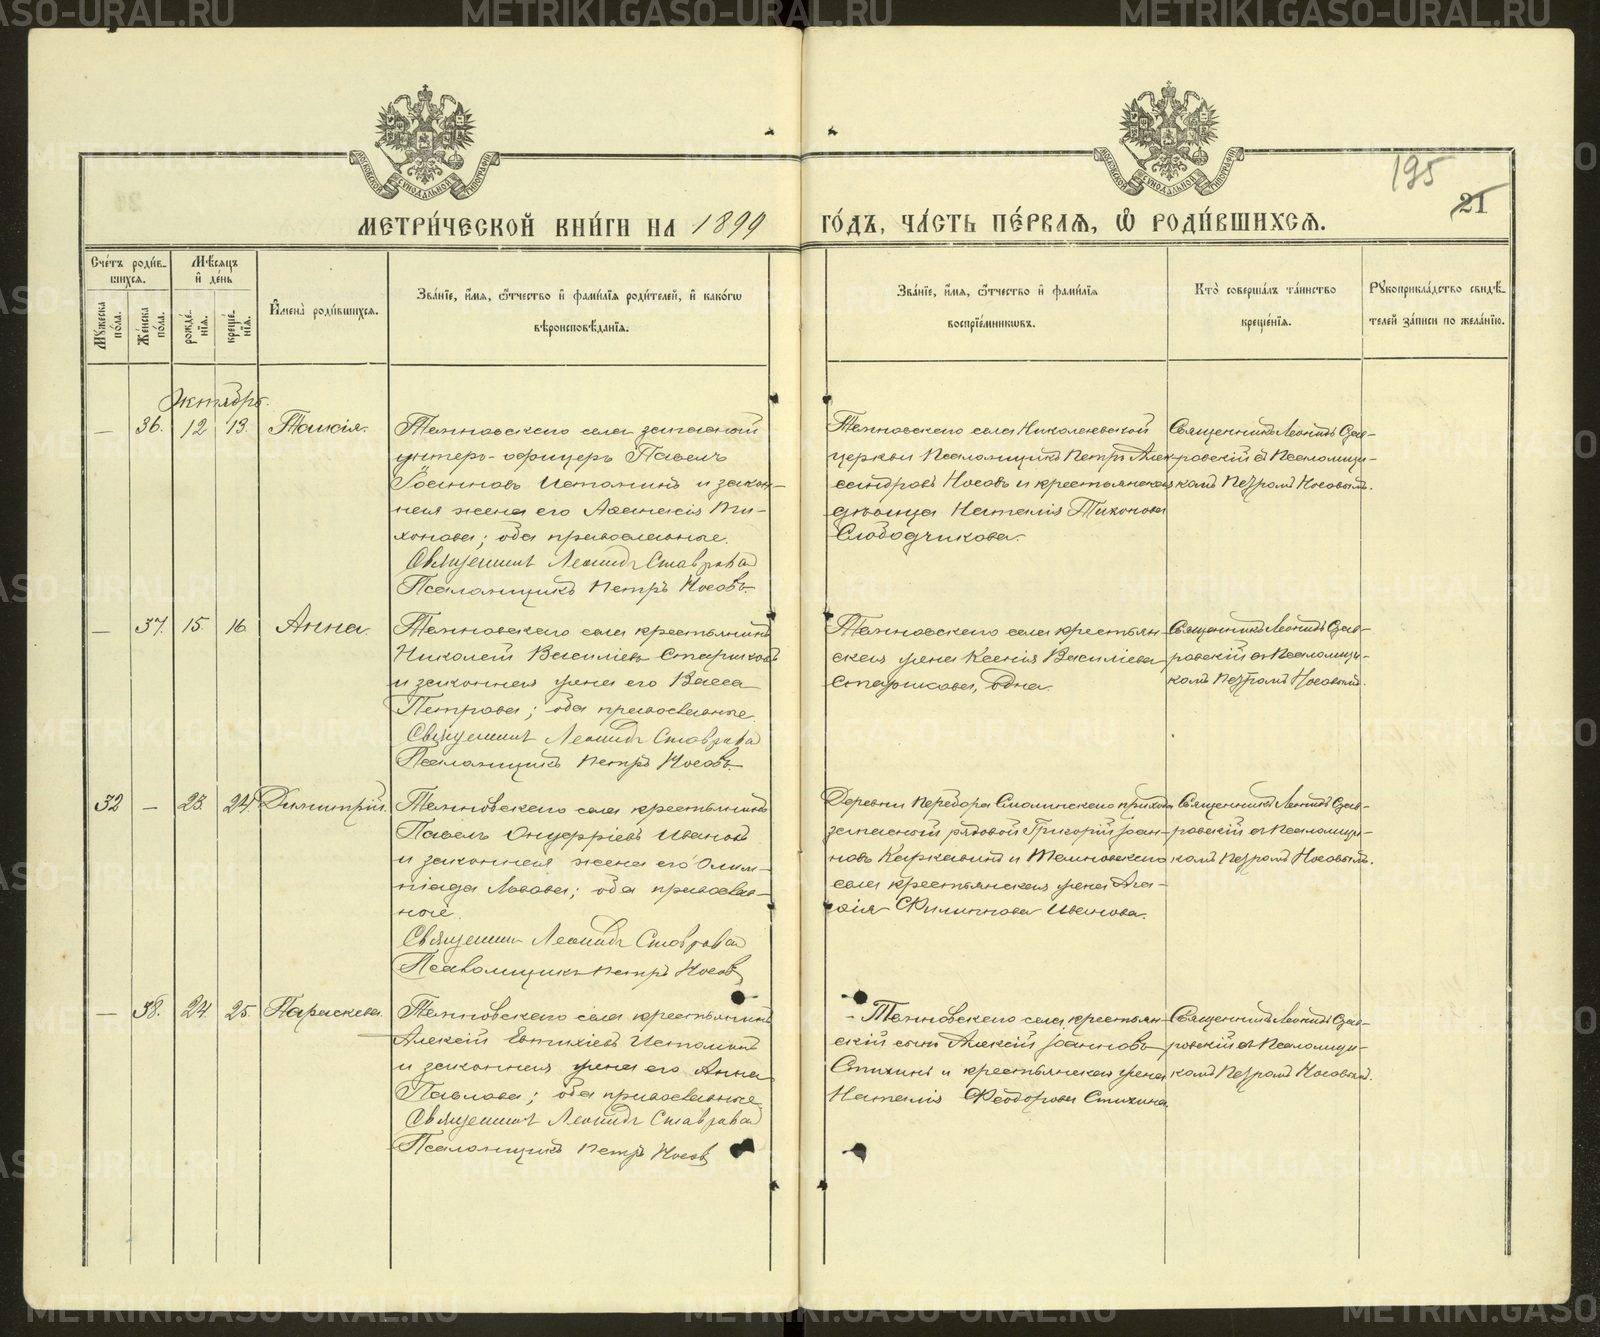 195
21
МЕТРИ́ЧЕСКОЙ КНИ́ГИ НА 1899 ГО́ДЪ, ЧА́СТЬ ПЕ́РВАЯ, Ѡ҆ РОДИ́ВШИХСЯ.
Сче́тъ роди́в-
шихся.
Мꙋ́жеска по́ла.
Же́нска по́ла.
Мѣ́сяцъ и҆ де́нь
рожде́-
нїя.
креще́-
нїя.
И҆мена̀ роди́вшихся.
Зва́нїе, и҆́мя, ѻ҆́тчество и҆ фами́лїя роди́телей, и҆ како́гѡ
вѣроисповѣ́данїя.
Зва́нїе, и҆́мя, ѻ҆́тчество и҆ фами́лїя
воспрїе́мникѡвъ.
Кто̀ соверша́лъ та́инство
креще́нїя.
Рꙋкоприкла́дство свидѣ́-
телей за́писи по жела́нїю.
Октябрь.
— 36. 12 13. Таисія.
Темновскаго села запасной
унтеръ-офицеръ Павелъ
Іоанновъ Истоминъ и закон-
ная жена его Аѳанасія Ти-
хонова; оба православные.
Священникъ Леонидъ Ставровскій
Псаломщикъ Петръ Носовъ.
Темновскаго села Николаевской
церкви Псаломщикъ Петръ Алек-
сандровъ Носовъ и крестьянская
дѣвица Наталія Тихонова
Слободчикова.
Священникъ Леонидъ Став-
ровскій съ Псаломщи-
комъ Петромъ Носовымъ.
— 37. 15. 16. Анна.
Темновскаго села крестьянинъ
Николай Василіевъ Стариковъ
и законная жена его Васса
Петрова; оба православные.
Священникъ Леонидъ Ставровскій
Псаломщикъ Петръ Носовъ
Темновскаго села крестьян-
ская жена Ксенія Василіева
Старикова, одна.
Священникъ Леонидъ Став-
ровскій съ Псаломщи-
комъ Петромъ Носовымъ.
32 — 23. 24. Димитрій.
Темновскаго села крестьянинъ
Павелъ Онуфріевъ Ивановъ
и законная жена его Олим-
піада Львова; оба православ-
ные.
Священникъ Леонидъ Ставровскій
Псаломщикъ Петръ Носовъ
Деревни Перебора Смолинскаго прихода
запасной рядовой Григорій Іоан-
новъ Каркавинъ и Темновскаго
села крестьянская жена Ага-
ѳія Филиппова Иванова.
Священникъ Леонидъ Став-
ровскій съ Псаломщи-
комъ Петромъ Носовымъ.
— 38. 24. 25. Параскева.
Темновскаго села крестьянинъ
Алексій Евтихіевъ Истоминъ
и законная жена его Анна
Павлова; оба православные
Священникъ Леонидъ Ставровскій
Псаломщикъ Петръ Носовъ
Темновскаго села крестьян-
скій сынъ Алексій Іоанновъ
Стихинъ и крестьянская жена
Наталія Ѳеодорова Стихина
Священникъ Леонидъ Став-
ровскій съ Псаломщи-
комъ Петромъ Носовымъ.
METRIKI.GASO-URAL.RU